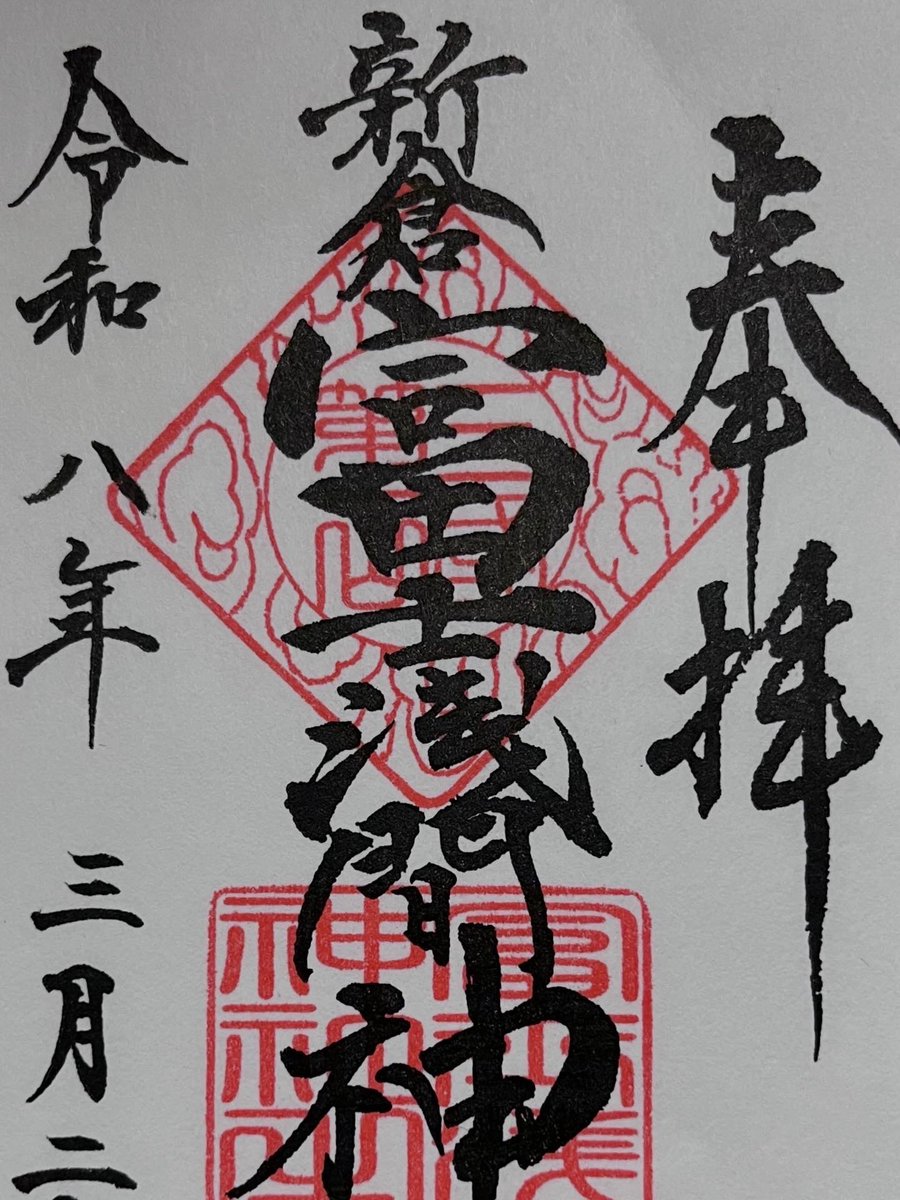 奉拝
新倉富士浅間神
令和八年三月二